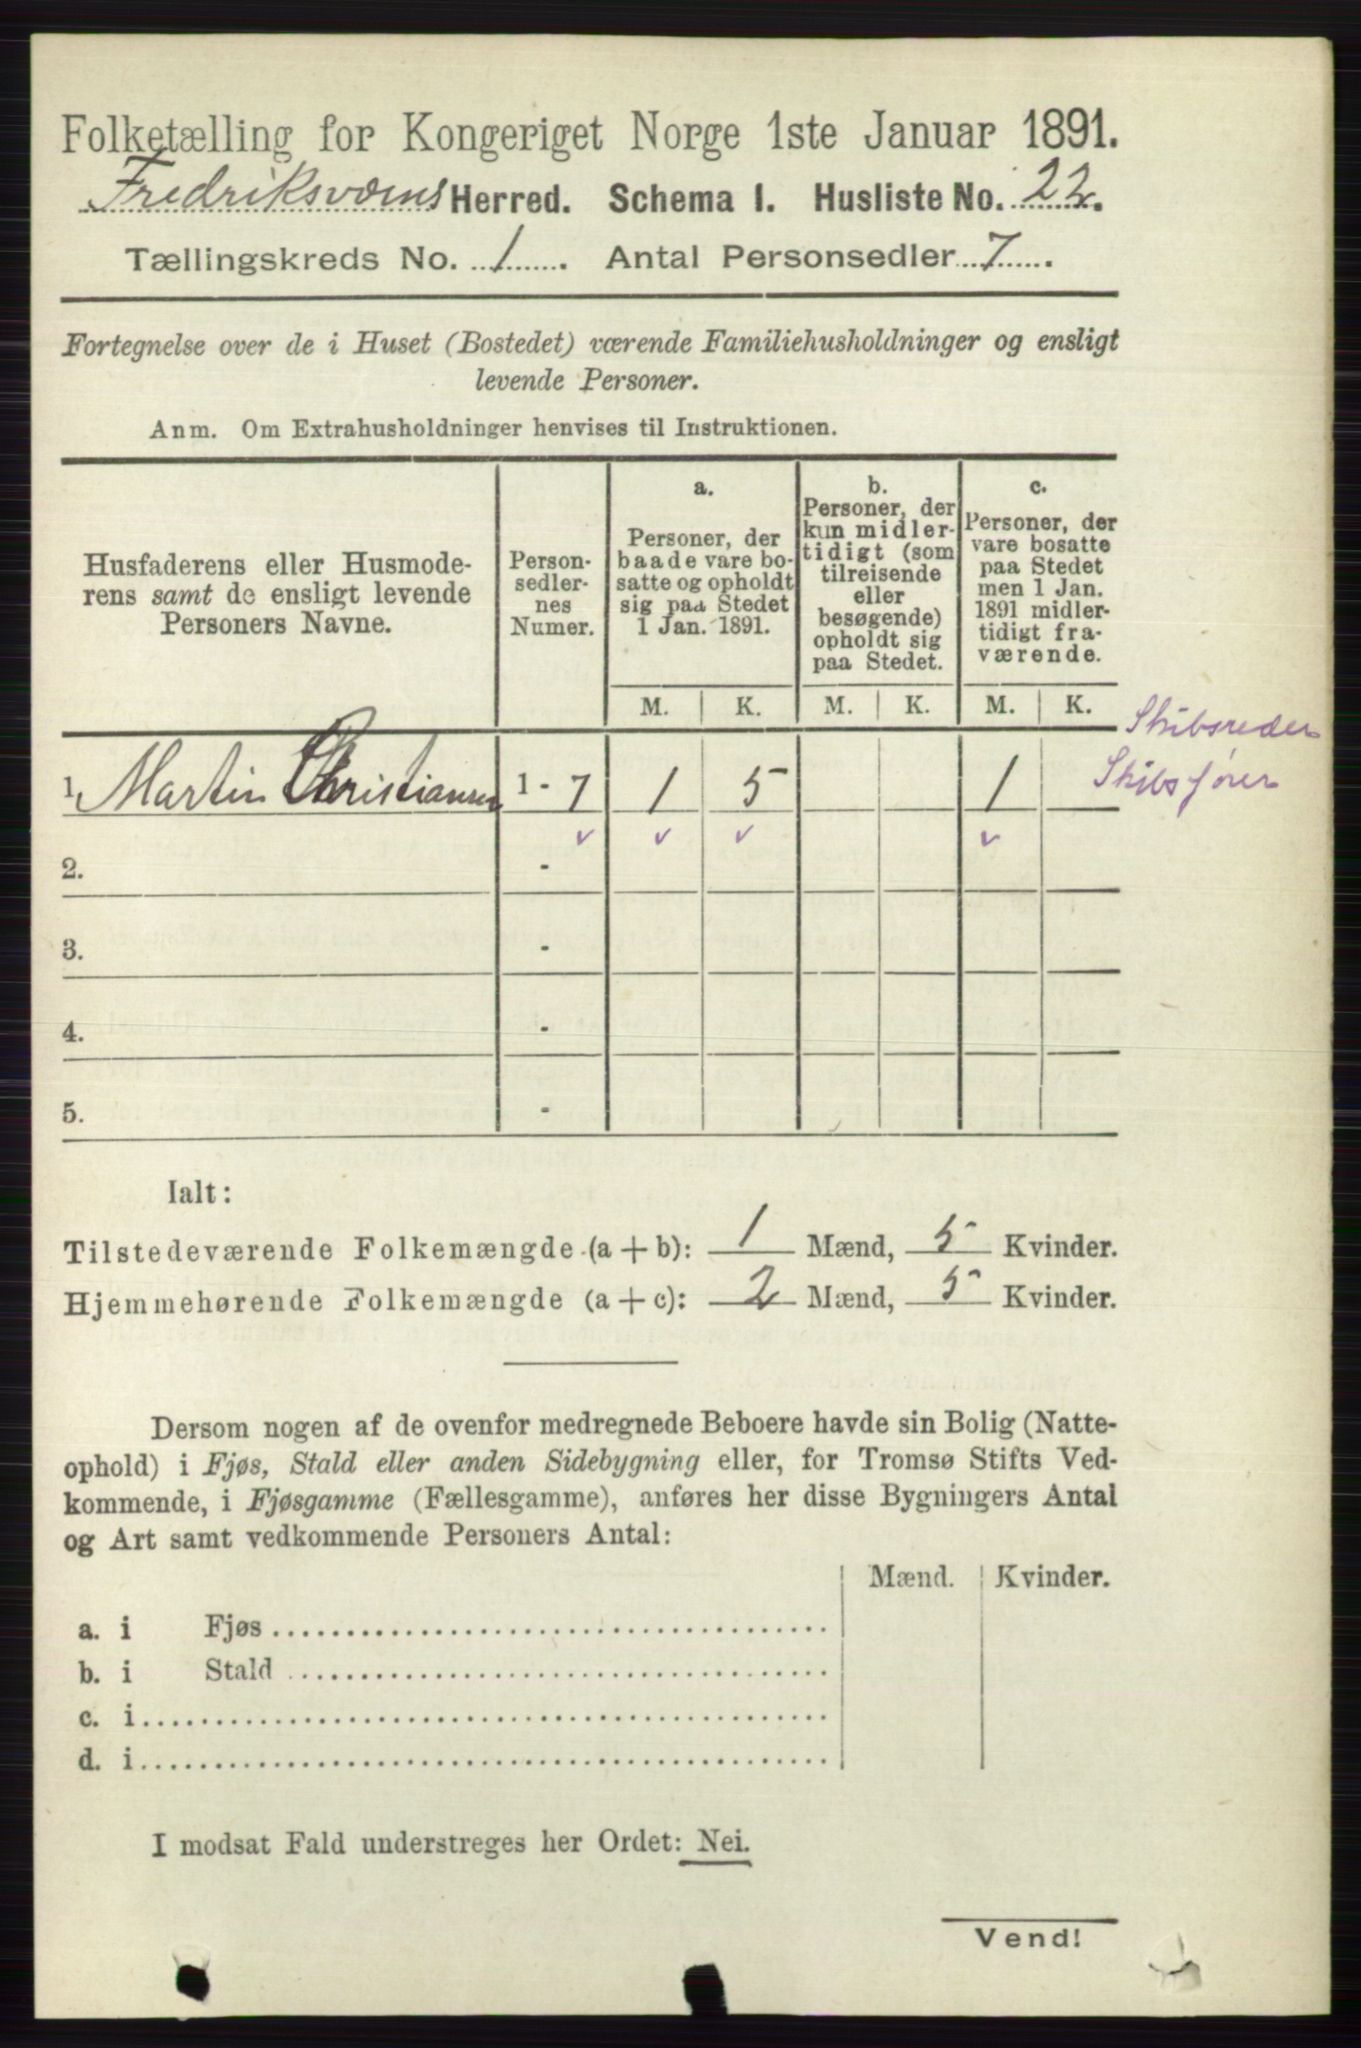 Folketælling for Kongeriget Norge 1ste Januar 1891.
Fredriksværns Herred. Schema I. Husliste No. 22.
Tællingskreds No. 1. Antal Personsedler 7.
Fortegnelse over de i Huset (Bostedet) værende Familiehusholdninger og ensligt
levende Personer.
Anm. Om Extrahusholdninger henvises til Instruktionen.
Husfaderens eller Husmode-
rens samt de ensligt levende
Personers Navne.
Person-
sedler-
nes
Numer.
a.
Personer, der
baade vare bo-
satte og opholdt
sig paa Stedet
1 Jan. 1891.
b.
Personer, der
kun midler-
tidigt (som
tilreisende
eller
besøgende)
opholdt sig
paa Stedet.
c.
Personer, der
vare bosatte
paa Stedet
men 1 Jan.
1891 midler-
tidigt fra-
værende.
M. K. M. K. M. K.
Skibsreder
1. Martin Christiansen 1 - 7 1 5 1 Skibsfører
v v v v
2. -
3. -
4. -
5. -
Ialt:
Tilstedeværende Folkemængde (a + b): 1 Mænd, 5 Kvinder.
Hjemmehørende Folkemængde (a + c): 2 Mænd, 5 Kvinder.
Dersom nogen af de ovenfor medregnede Beboere havde sin Bolig (Natte-
ophold) i Fjøs, Stald eller anden Sidebygning eller, for Tromsø Stifts Ved-
kommende, i Fjøsgamme (Fællesgamme), anføres her disse Bygningers Antal
og Art samt vedkommende Personers Antal:
Mænd. Kvinder.
a. i Fjøs
b. i Stald
c. i
d. i
I modsat Fald understreges her Ordet: Nei.
Vend!